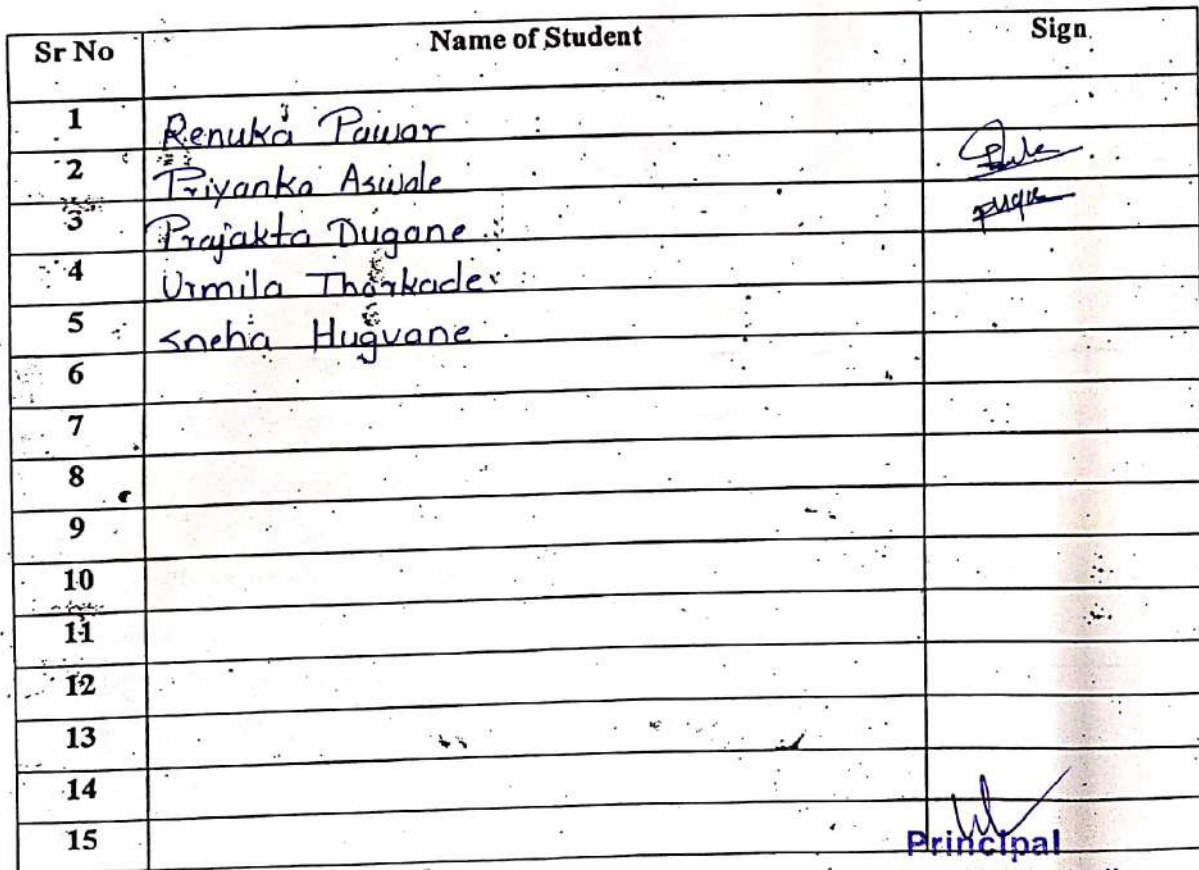 Sr No Name of Student Sign
1 Renuka Pawar
2 Priyanka Aswale
3 Prajakta Dugane
4 Urmila Tharkade
5 Sneha Hugvane
6
7
8
9
10
11
12
13
14
15
Principal